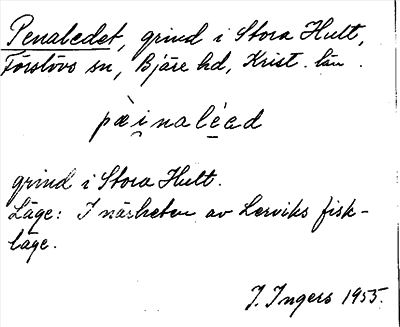 Penaledet, grind i Stora Hult,
Förslövs sn, Bjäre hd, Krist. län.
pæ̀i̯naléed
grind i Stora Hult.
Läge: I närheten av Lerviks fisk-
läge.
I. Ingers 1955.